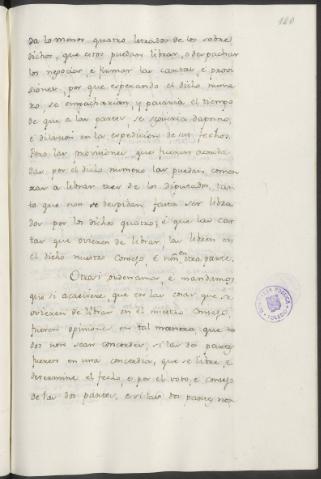 140
da lo menos quatro letrados de los sobre
dichos, que estos puedan librar, o despachar
los negocios, e firmar las cartas, e provi
siones, por que esperando el dicho nume
ro, se empacharian, y pasaria el tiempo
de que a las partes se seguiria dapno,
e dilacion en la expedicion de sus fechos.
Pero las provisiones que fueren acorda
das por el dicho numero las puedan comen
zar a librar tres de los diputados, tan
to que non se despidan fasta ser libra
das por los dichos quatro, e que las car
tas que ovieren de librar, las libren en
el dicho nuestro Consejo, e non en otra parte.
Otrosi ordenamos, e mandamos
que si acaesciere que en las cosas que se
ovieren de librar en el nuestro Consejo,
fueren opiniones en tal manera que to
dos non sean concordes, si las dos partes
fueren en una concordia, que se libre, e
determine el fecho, e por el voto, e consejo
de las dos partes, e si las dos partes non
BIBLIOTECA PUBLICA
TOLEDO